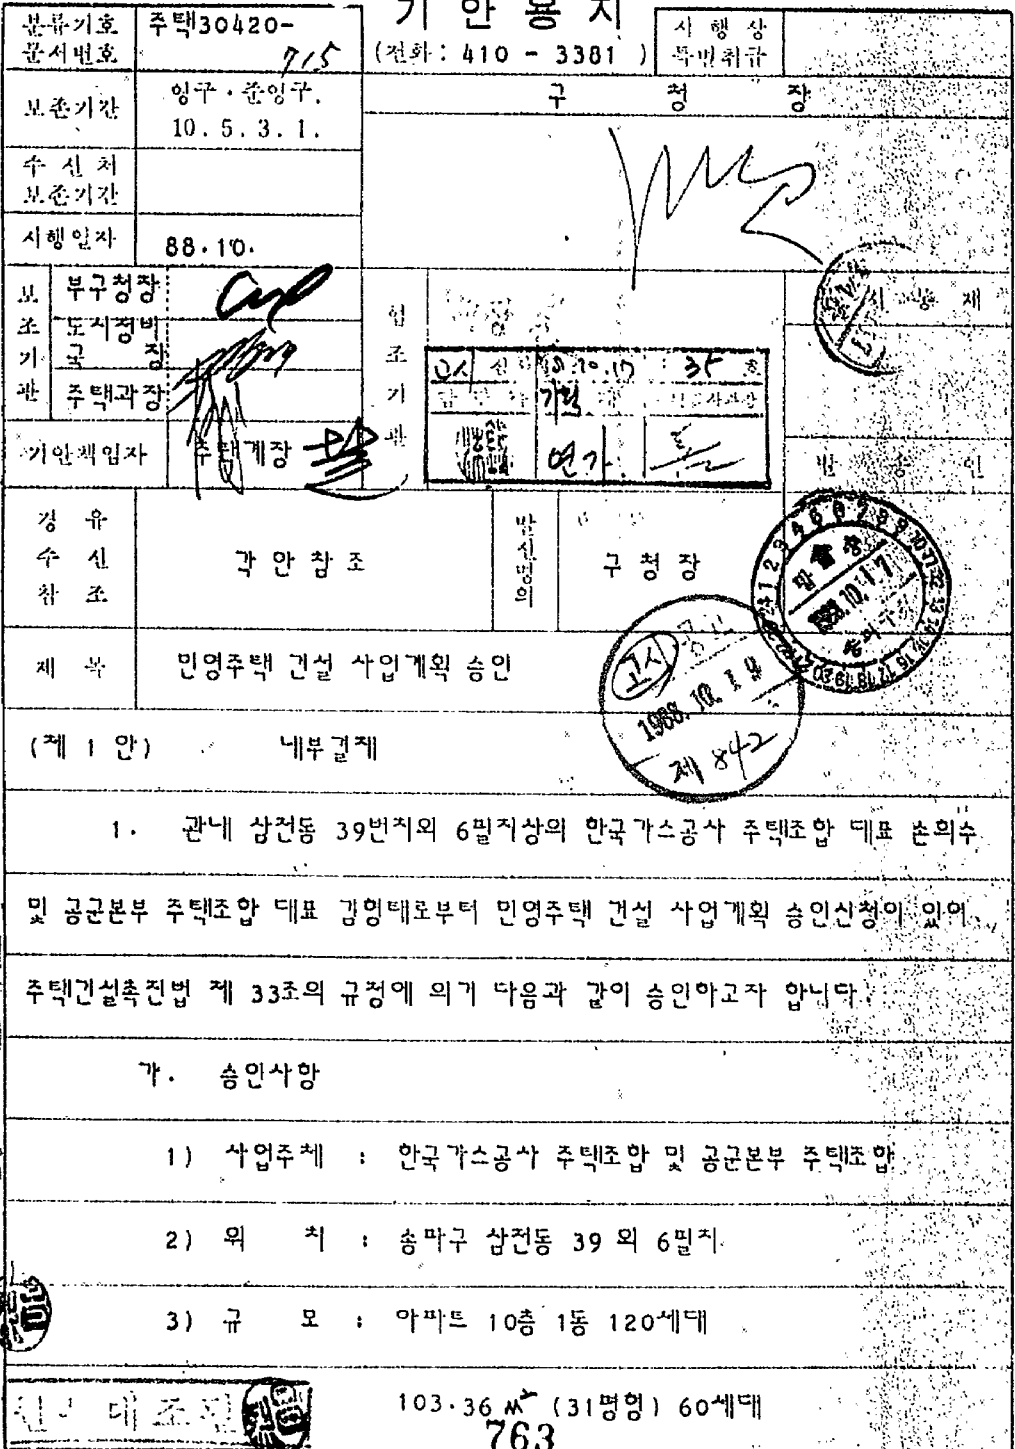 기 안 용 지
분류기호
문서번호
주택30420-
715
(전화 : 410 - 3381 )
시 행 상
특별취급
보존기간
영구 · 준영구.
10. 5. 3. 1.
구 청 장
수 신 처
보존기간
시행일자
88.10.
보 조 기 관
부구청장
도시정비
국 장
주택과장
협 조 기 관
고시
10.17
35 호
기획
연가
기안책임자
주택계장
발 송 인
경 유
수 신
참 조
각 안 참 조
발신명의
구 청 장
발 송
10.17
제 목
민영주택 건설 사업계획 승인
고시
공고
1988. 10. 19
제 842
(제 1 안) 내부결재
1. 관내 삼전동 39번지외 6필지상의 한국가스공사 주택조합 대표 손희수
및 공군본부 주택조합 대표 김형태로부터 민영주택 건설 사업계획 승인신청이 있어
주택건설촉진법 제 33조의 규정에 의거 다음과 같이 승인하고자 합니다.
가. 승인사항
1) 사업주체 : 한국가스공사 주택조합 및 공군본부 주택조합
2) 위 치 : 송파구 삼전동 39 외 6필지
3) 규 모 : 아파트 10층 1동 120세대
103.36 ㎡ (31평형) 60세대
763